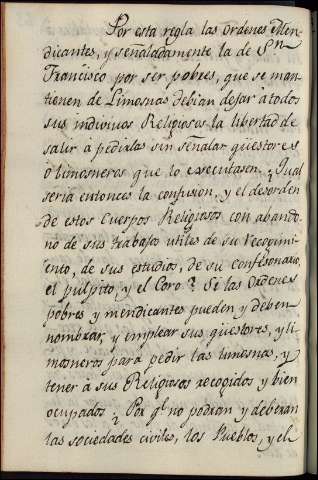 Por esta regla las Ordenes Men-
dicantes, y señaladamente la de Sn
Francisco por ser pobres, que se man-
tienen de Limosnas debian dejar à todos
sus indivíuos Religiosos la libertad de
salir à pedirlas sin señalar qüestores
ò limosneros que lo executasen. ¿Qual
seria entonces la confusion, y el desorden
de estos Cuerpos Religiosos con abando-
no de sus trabajos utiles de su recogimi-
ento, de sus estudios, de su confesionario,
el pulpito, y el Coro? Si las Ordenes
pobres y mendicantes pueden y deben
nombrar, y emplear sus qüestores, y li-
mosneros para pedir las limosnas, y
tener à sus Religiosos recogidos y bien
ocupados ¿Por qe no podran y deberan
las sociedades civiles, los Pueblos, y el